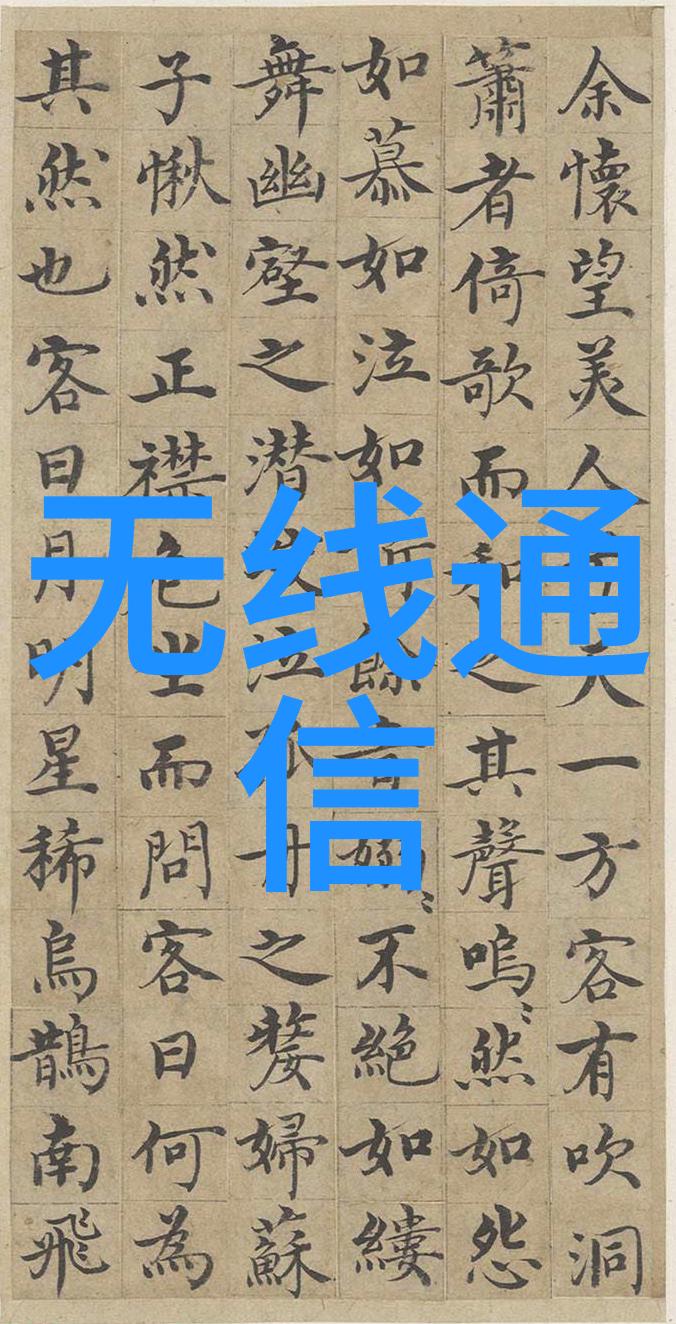 余懷望美人天一方客有吹洞
簫者倚歌而和之其聲嗚〻然如怨
如慕如泣如餘音嫋〻不絕如縷
舞幽壑之潜泣舟之嫠婦蘇
子愀然正襟危坐而問客曰何為
其然也客曰月明星稀烏鵲南飛
无线通
信